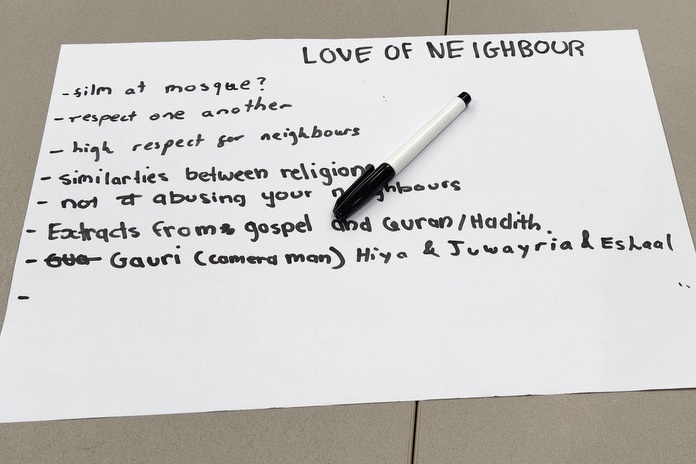 LOVE OF NEIGHBOUR
- film at mosque?
- respect one another
- high respect for neighbours
- similarties between religions
- not abusing your neighbours
- Extracts from gospel and Quran/Hadith.
- Gauri (camera man) Hiya & Juwayria & Eshaal
-